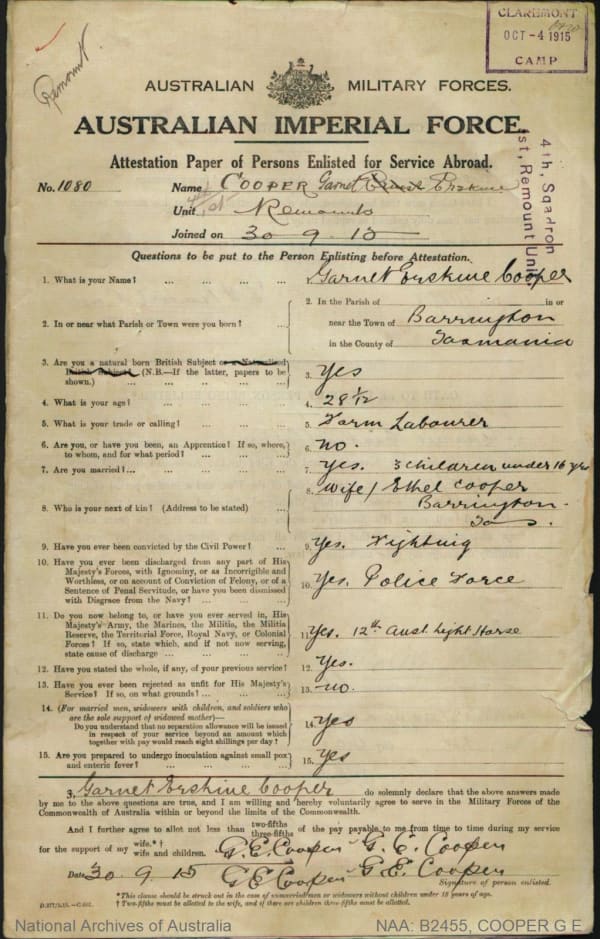 CLAREMONT
OCT - 4 1915
CAMP
Remount
AUSTRALIAN MILITARY FORCES.
AUSTRALIAN IMPERIAL FORCE.
Attestation Paper of Persons Enlisted for Service Abroad.
4th, Sqadron
st, Remount Unit
No. 1080 Name COOPER Garnet Ernest Erskine
Unit Remounts
Joined on 30 9 15
Questions to be put to the Person Enlisting before Attestation.
1. What is your Name? ... ... ... ... Garnet Erskine Cooper
2. In or near what Parish or Town were you born? ...
2. In the Parish of in or
near the Town of Barrington
in the County of Tasmania
3. Are you a natural born British Subject or a Naturalised
British Subject? (N.B.—If the latter, papers to be
shown.) ... ... ... ... 3. Yes
4. What is your age? ... ... ... ... 4. 28 1/12
5. What is your trade or calling? ... ... ... 5. Farm Labourer
6. Are you, or have you been, an Apprentice? If so, where,
to whom, and for what period? ... ... ... 6. no.
7. Are you married? ... ... ... ... 7. Yes. 3 children under 16 yrs
8. Who is your next of kin? (Address to be stated) ...
8. Wife / Ethel Cooper
Barrington
Tas.
9. Have you ever been convicted by the Civil Power? ... 9. Yes. Fighting
10. Have you ever been discharged from any part of His
Majesty's Forces, with Ignominy, or as Incorrigible and
Worthless, or on account of Conviction of Felony, or of a
Sentence of Penal Servitude, or have you been dismissed
with Disgrace from the Navy? ... ... ... 10. Yes. Police Force
11. Do you now belong to, or have you ever served in, His
Majesty's Army, the Marines, the Militia, the Militia
Reserve, the Territorial Force, Royal Navy, or Colonial
Forces? If so, state which, and if not now serving,
state cause of discharge ... ... ... 11. Yes. 12th Aust. Light Horse
12. Have you stated the whole, if any, of your previous service? 12. Yes.
13. Have you ever been rejected as unfit for His Majesty's
Service? If so, on what grounds? ... ... ... 13. no.
14. (For married men, widowers with children, and soldiers who
are the sole support of widowed mother)—
Do you understand that no separation allowance will be issued
in respect of your service beyond an amount which
together with pay would reach eight shillings per day? ... 14. Yes
15. Are you prepared to undergo inoculation against small pox
and enteric fever? ... ... ... ... 15. Yes
I, Garnet Erskine Cooper do solemnly declare that the above answers made
by me to the above questions are true, and I am willing and hereby voluntarily agree to serve in the Military Forces of the
Commonwealth of Australia within or beyond the limits of the Commonwealth.
And I further agree to allot not less than two-fifths three-fifths of the pay payable to me from time to time during my service
for the support of my wife.*† wife and children. G. E. Cooper G. E. Cooper
Date 30. 9. 15 G E Cooper G. E. Cooper
Signature of person enlisted.
*This clause should be struck out in the case of unmarried men or widowers without children under 18 years of age.
† Two-fifths must be allotted to the wife, and if there are children three-fifths must be allotted.
National Archives of Australia
NAA: B2455, COOPER G E